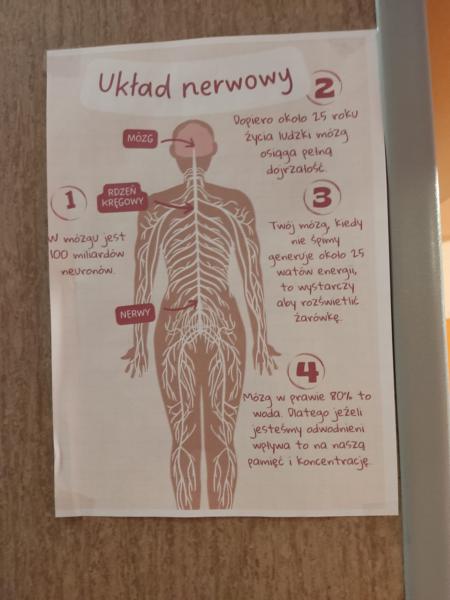 Układ nerwowy
MÓZG
RDZEŃ
KRĘGOWY
NERWY
1
W mózgu jest
100 miliardów
neuronów.
2
Dopiero około 25 roku
życia ludzki mózg
osiąga pełną
dojrzałość.
3
Twój mózg, kiedy
nie śpimy
generuje około 25
watów energii,
to wystarczy
aby rozświetlić
żarówkę.
4
Mózg w prawie 80% to
woda. Dlatego jeżeli
jesteśmy odwodnieni
wpływa to na naszą
pamięć i koncentrację.